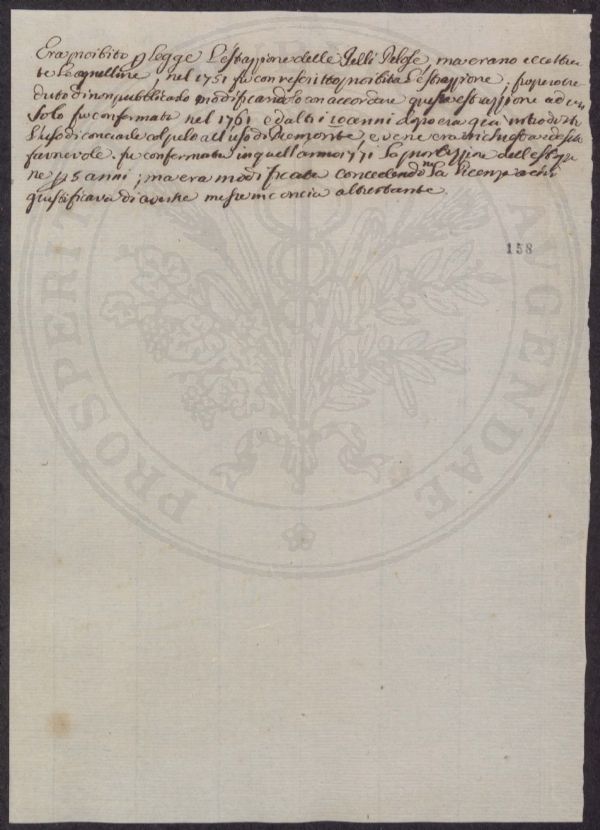 Era proibito p legge L'estrazione delle Pelli Pelose, ma erano eccettua
te Le agnelline; nel 1751 fu con rescritto proibita L'estrazione;
duto di non pubblicarlo modificandolo con accordare questa estrazione ad un
Solo fu confermata nel 1761 e d'altri 10 anni dopo era già introdotto
L'uso di conciarle col pelo all'uso di Piemonte, e vene era richiesta
favorevole. fu confermata in quell'anno 1771 La proibizione dell'
ne p 5 anni; ma era modificata concedendone La Licenza a chi
giustificava di averne messe in concia altrettante.
158
PROSPERIT AUGENDAE